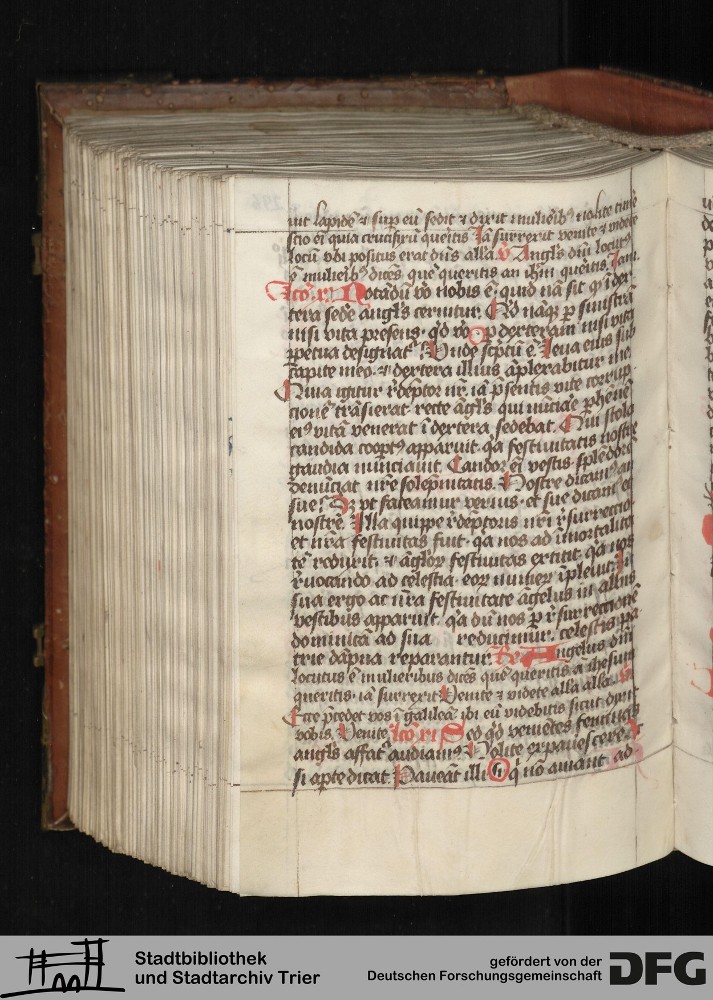 uit lapidē ⁊ suꝑ eū sedit ⁊ dixit mulierib⁹ nolite time
scio eī quia crucifixū queritis Iā surrexit venite ⁊ videte
locū vbi positus erat dn̄s alla v̄ Angl̄s dn̄i locut⁹
ē mulierib⁹ dicēs quē queritis an ih̄m queritis Iam
Lc̄o x Notādū vō nobis ē quid nā sit ꝙ ī dex
tera sede angl̄s cernitur Qd nāqꝫ ꝑ sinistrā
nisi vita presens qd vō ꝑ dexteram nisi vita
ꝑpetua designat᷑ Vnde sc̄ptū ē Leua eius sub
capite meo ⁊ dextera illius āplexabitur me
Quia igitur rēdēptor nr̄ iā p̄sentis vite corrup
cionē trāsierat recte āgl̄s qui nūciare ꝑhēnē
ei⁹ vitā venerat ī dextera sedebat Qui stola
candida cooꝑt⁹ apparuit qa festiuitatis nostre
gaudia nunciauit Candor eī vestis splēdorē
denūciat nr̄e solēpnitatis Nostre dicam⁹ an
sue Sꝫ vt fateamur verius et sue dicam⁹ et
nostre Illa quippe rēdēptoris nr̄i r̄surrectio
et nr̄a festiuitas fuit qa nos ad īmortalita
tē reduxit ⁊ āglōꝝ festiuitas extitit qa nos
r̄uocando ad celestia eoꝝ nūmeꝝ īpleuit In
sua ergo ac nr̄a festiuitate āgelus in albis
vestibus apparuit qa dū nos ꝑ r̄surrectionē
dominicā ad sūꝑna reducimur celestis pa
trie dāpna reparantur R̄ Angelus dn̄i
locutus ē mulieribus dicēs quē queritis a ihesum
queritis iā surrexit Venite ⁊ videte alla alla v̄
Ecce p̄cedet vos ī galileā ibi eū videbitis sicut dixit
vobis Venite Lc̄o xi Sed qd veniētes feminas
angl̄s affat᷑ audiam⁹ Nolite expauescere Ac
si aꝑte dicat Paueāt illi qi nō amant ad
Stadtbibliothek
und Stadtarchiv Trier
gefördert von der
Deutschen Forschungsgemeinschaft
DFG